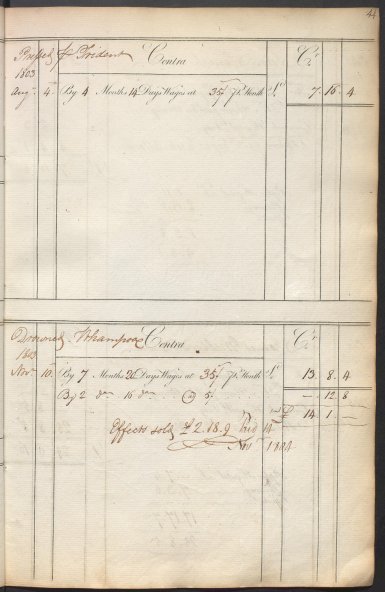 44
Pressed p. Trident Contra Cr.
1803
Augt. 4 By 4 Months 14 Days Wages at 35/ Pr. Month 7. 16. 4
Drowned - Whampoa Contra Cr.
1803
Novr. 10. By 7 Months 26 Days Wages at 35/ Pr. Month 13. 8. 4
By 2 do 16 do @ 5/ - 12 8
£ 14 1 -
Effects sold £2.18.9 Paid 14
Novr 1804